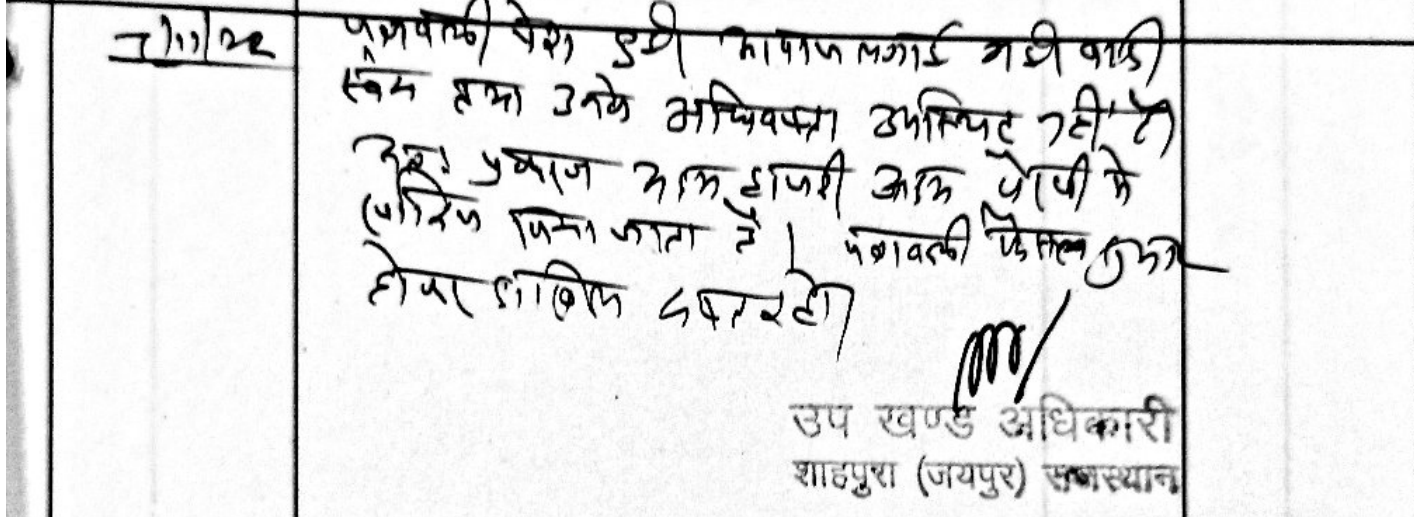 पत्रावली पेश हुयी आवाज लगाई गयी वादी
स्वयं तथा उनके अधिवक्ता उपस्थित नहीं है।
अतः प्रकरण अदम हाजरी अदम पैरवी में
खारिज किया जाता है। पत्रावली फैसल शुमार
होकर दाखिल दफ्तर हो।
उप खण्ड अधिकारी
शाहपुरा (जयपुर) राजस्थान